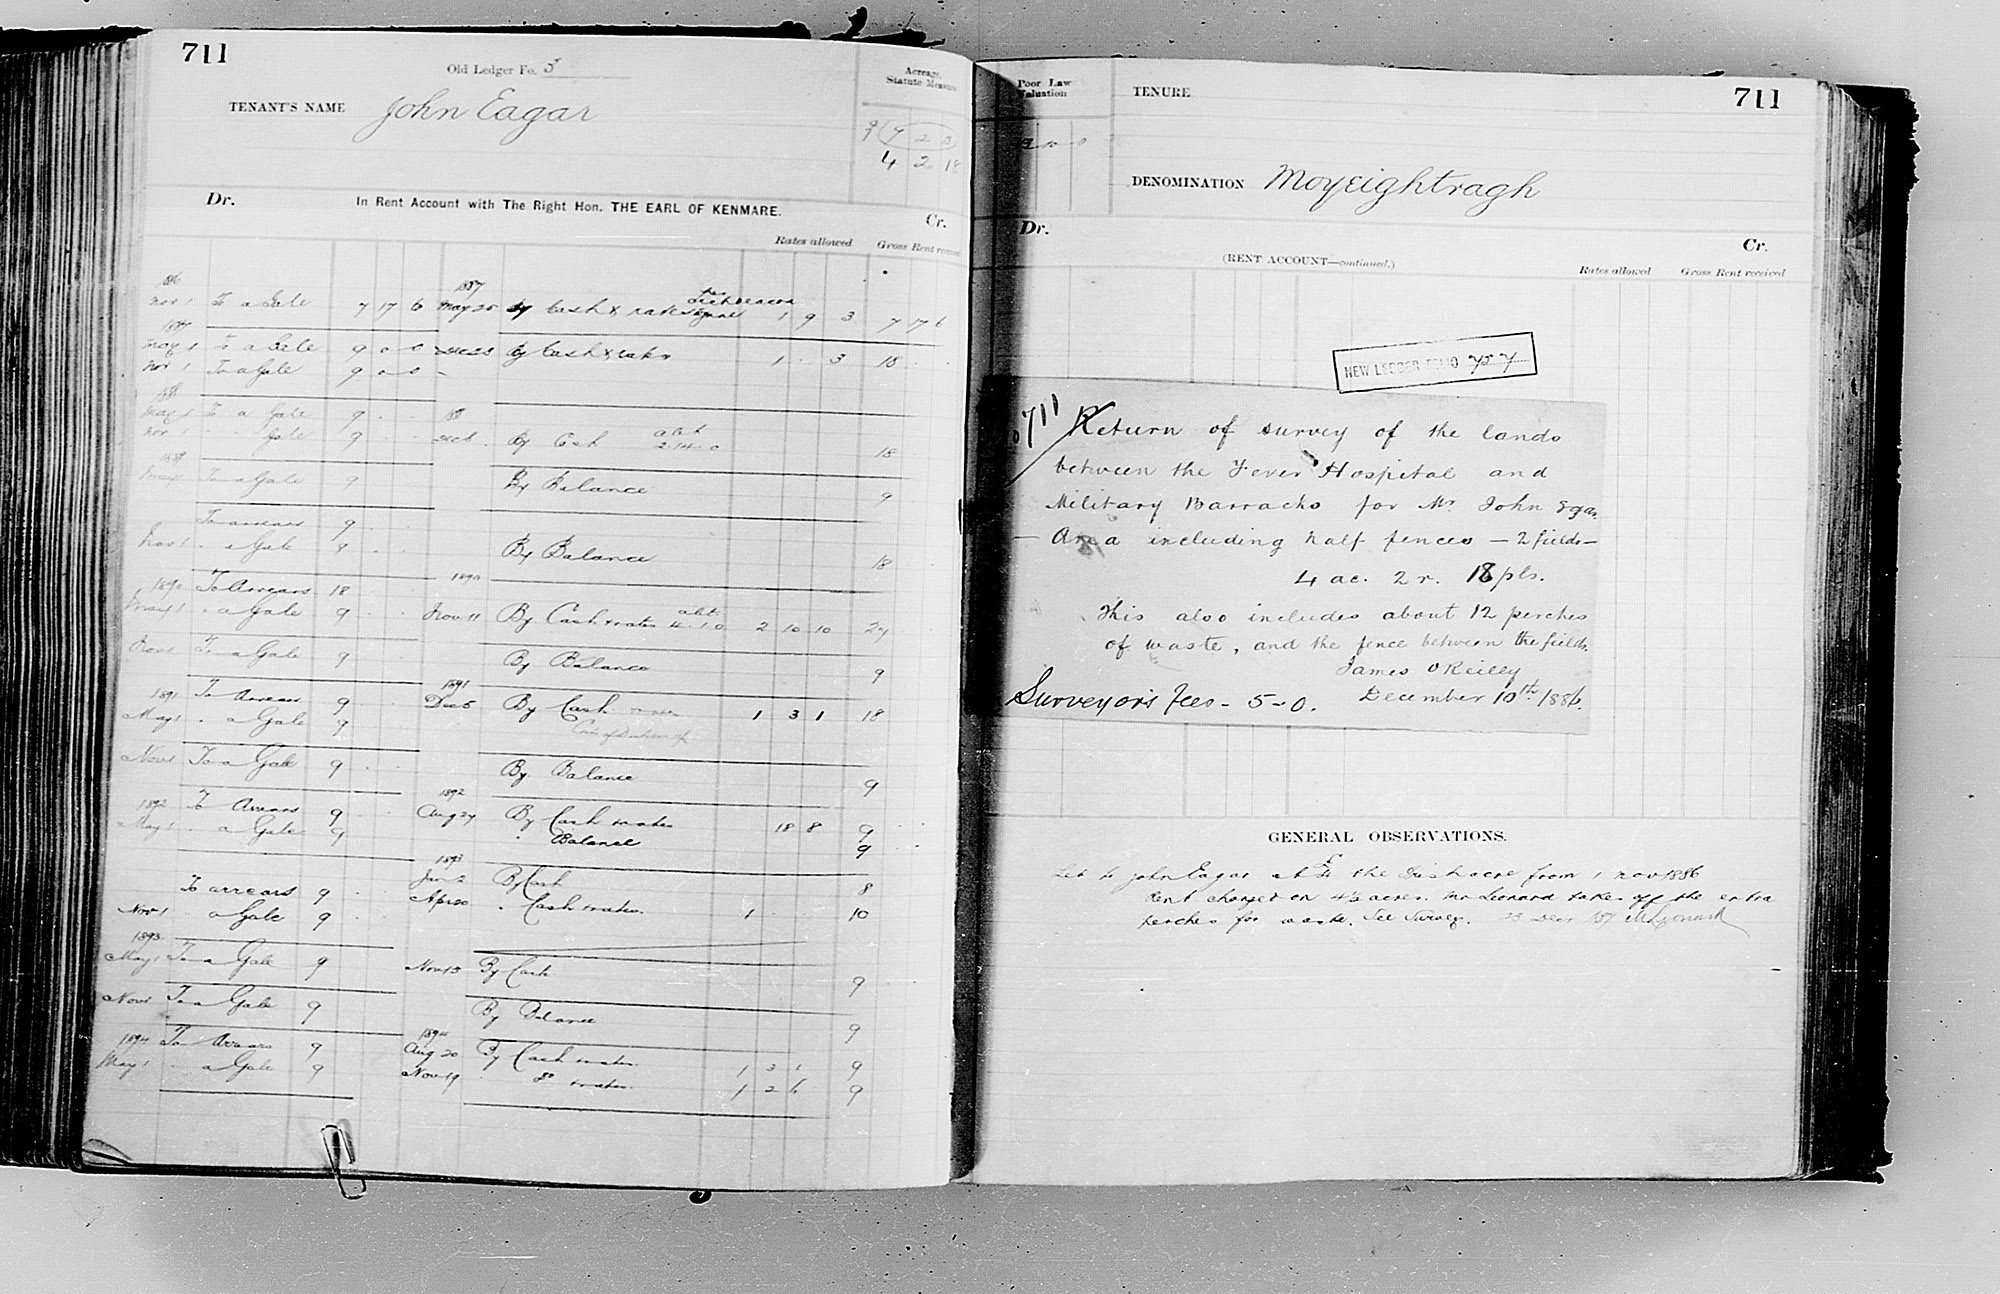 711
Old Ledger Fo. 5
TENANT'S NAME John Eagar
Acreage, Statute Measure
4 2 18
Dr. In Rent Account with The Right Hon. THE EARL OF KENMARE. Cr.
Rates allowed Gross Rent received
1887
Nov 1 To a Gale 7 17 6 May 25 By Cash & rates 1 9 3 7 17 6
1887
May 1 To a Gale 9 0 0 By Cash & rates 1 3 18
Nov 1 To a Gale 9 0 0
88
May 1 To a Gale 9 88
Nov 1 Gale 9 By Cash abt 2.14.0 18
1889
May 1 To a Gale 9 By Balance 9
To arrears 9
Nov 1 a Gale 9 By Balance 18
1890 To Arrears 18 1890
May 1 a Gale 9 Nov 11 By Cash & rates abt 4.1.0 2 10 10 27
Nov 1 To a Gale 9 By Balance 9
1891 To Arrears 9 1891
May 1 a Gale 9 Dec 5 By Cash 1 3 1 18
Nov 1 To a Gale 9 By Balance 9
1892 To Arrears 9 1892
May 1 a Gale 9 Aug 27 By Cash & rates 18 8 9
Balance 9
1893
To arrears 9 Jan 2 By Cash 8
Nov 1 a Gale 9 Apr 20 Cash & rates 1 10
1893
May 1 To a Gale 9 Nov 15 By Cash 9
Nov 1 To a Gale 9 By Balance 9
1894 To Arrears 9 1894
May 1 a Gale 9 Aug 20 By Cash & rates 1 3 1 9
Nov 19 do & rates 1 2 6 9
Poor Law Valuation
TENURE
711
DENOMINATION Moyeightragh
Dr. Cr.
(RENT ACCOUNT—continued.)
Rates allowed Gross Rent received
NEW LEDGER FOLIO 757
711 Return of survey of the lands
between the Fever Hospital and
Military Barracks for Mr John Egar
— Area including half fences — 2 fields —
4 ac. 2 r. 18 pls.
This also includes about 12 perches
of waste, and the fence between the fields.
James O'Reilly
Surveyor's Fees - 5-0. December 10th 1886.
GENERAL OBSERVATIONS.
Let to John Eagar at £4 the Irish acre from 1 Nov 1886
Rent charged on 4½ acres. Mr Leonard takes off the extra
perches for waste. See Survey. 23 Decr /87 M Leonard